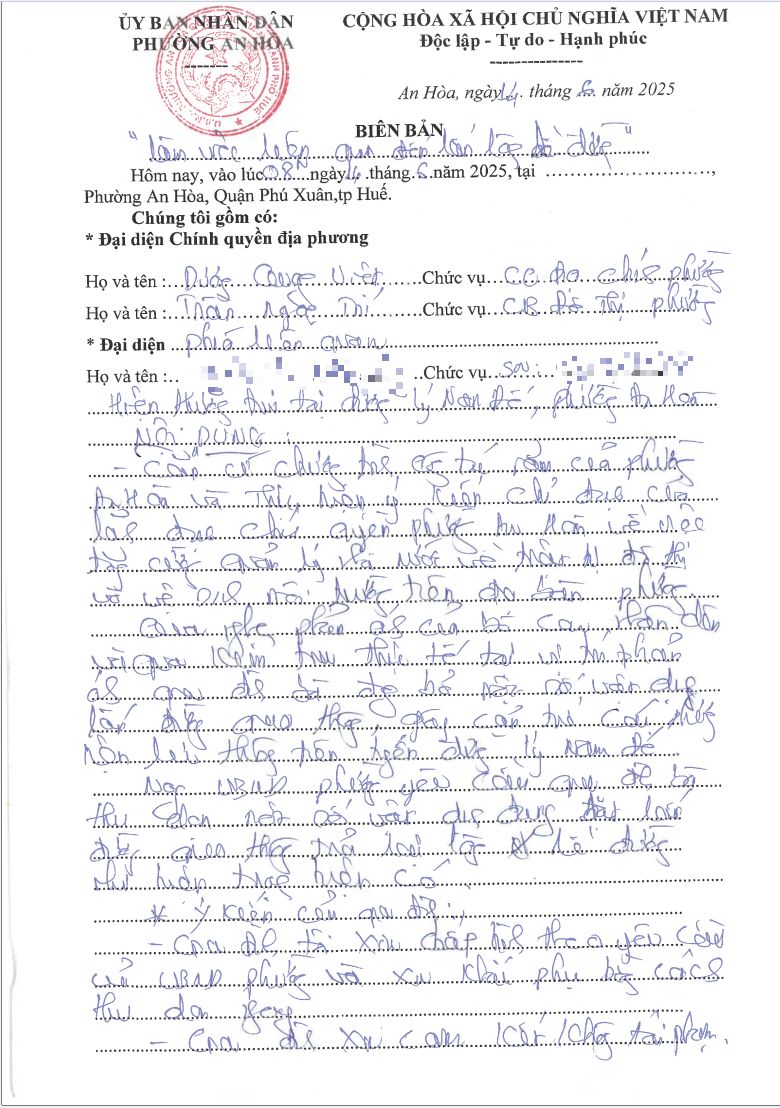 ỦY BAN NHÂN DÂN
PHƯỜNG AN HÒA
-------
CỘNG HÒA XÃ HỘI CHỦ NGHĨA VIỆT NAM
Độc lập - Tự do - Hạnh phúc
---------------
An Hòa, ngày 14 tháng 6 năm 2025
BIÊN BẢN
"Làm việc liên quan đến lấn đường"
Hôm nay, vào lúc 08h ngày 14 tháng 6 năm 2025, tại ........................,
Phường An Hòa, Quận Phú Xuân,tp Huế.
Chúng tôi gồm có:
* Đại diện Chính quyền địa phương
Họ và tên : Dương Công Việt Chức vụ CC địa chính phường
Họ và tên : Trần Ngọc Chức vụ CB Đô Thị phường
* Đại diện phía liên quan
Họ và tên : Chức vụ
Hiện thường trú tại đường Lý Nam Đế, phường An Hòa
NỘI DUNG :
- Căn cứ chương trình công tác năm của phường
An Hòa và thực hiện ý kiến chỉ đạo của
lãnh đạo chính quyền phường An Hòa về việc
tăng cường quản lý nhà nước về trật tự đô thị
và về sinh môi trường trên địa bàn phường.
Qua nghe phản ánh của bà con nhân dân
và qua kiểm tra thực tế tại vị trí phản
ánh gia đình đã để một số vật dụng
lấn đường giao thông, gây cản trở
trên tuyến đường Lý Nam Đế
Nay UBND phường yêu cầu gia đình
thu dọn một số vật dụng đang đặt lấn
đường giao thông trả lại lòng lề đường
như hiện trạng hiện có.
* Ý kiến của gia đình:
- Gia đình tôi xin chấp hành theo yêu cầu
của UBND phường và xin khắc phục bằng cách
thu dọn ngay
- Gia đình xin cam kết không tái phạm.